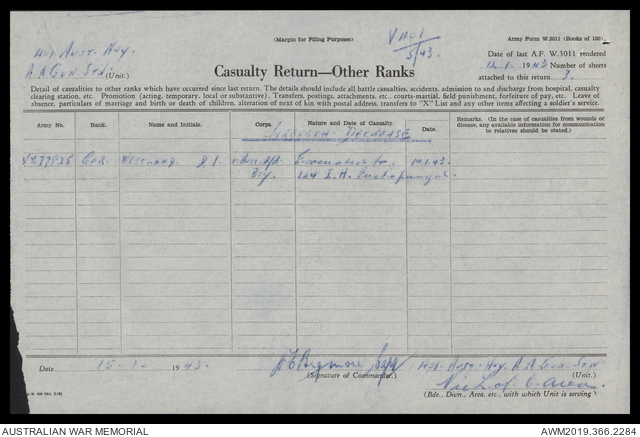 (Margin for Filing Purposes)
Army Form W.3011 (Books of 100)
V1401
5/43.
401 Aust. Hvy.
A A Gun Stn. (Unit.)
Date of last A.F. W.3011 rendered
12. 1. 1943 Number of sheets
attached to this return 3.
Casualty Return—Other Ranks
Detail of casualties to other ranks which have occurred since last return. The details should include all battle casualties, accidents, admission to and discharge from hospital, casualty
clearing station, etc. Promotion (acting, temporary, local or substantive). Transfers, postings, attachments, etc., courts-martial, field punishment, forfeiture of pay, etc. Leave of
absence, particulars of marriage and birth or death of children, alteration of next of kin with postal address, transfers to "X" List and any other items affecting a soldier's service.
Army No. Rank. Name and Initials. Corps. Nature and Date of Casualty. Date. Remarks. (In the case of casualties from wounds or
disease, any available information for communication
to relatives should be stated.)
Strength Decrease
Evacuated to 14.1.43.
Bty. 124 I.H. Puckapunyal
Date 15. 1. 1943. (Signature of Commander.) 401. Aust. Hvy. A A Gun. Stn
(Unit.)
Vic L of C Area.
(Bde., Divn., Area, etc., with which Unit is serving)
AUSTRALIAN WAR MEMORIAL AWM2019.366.2284